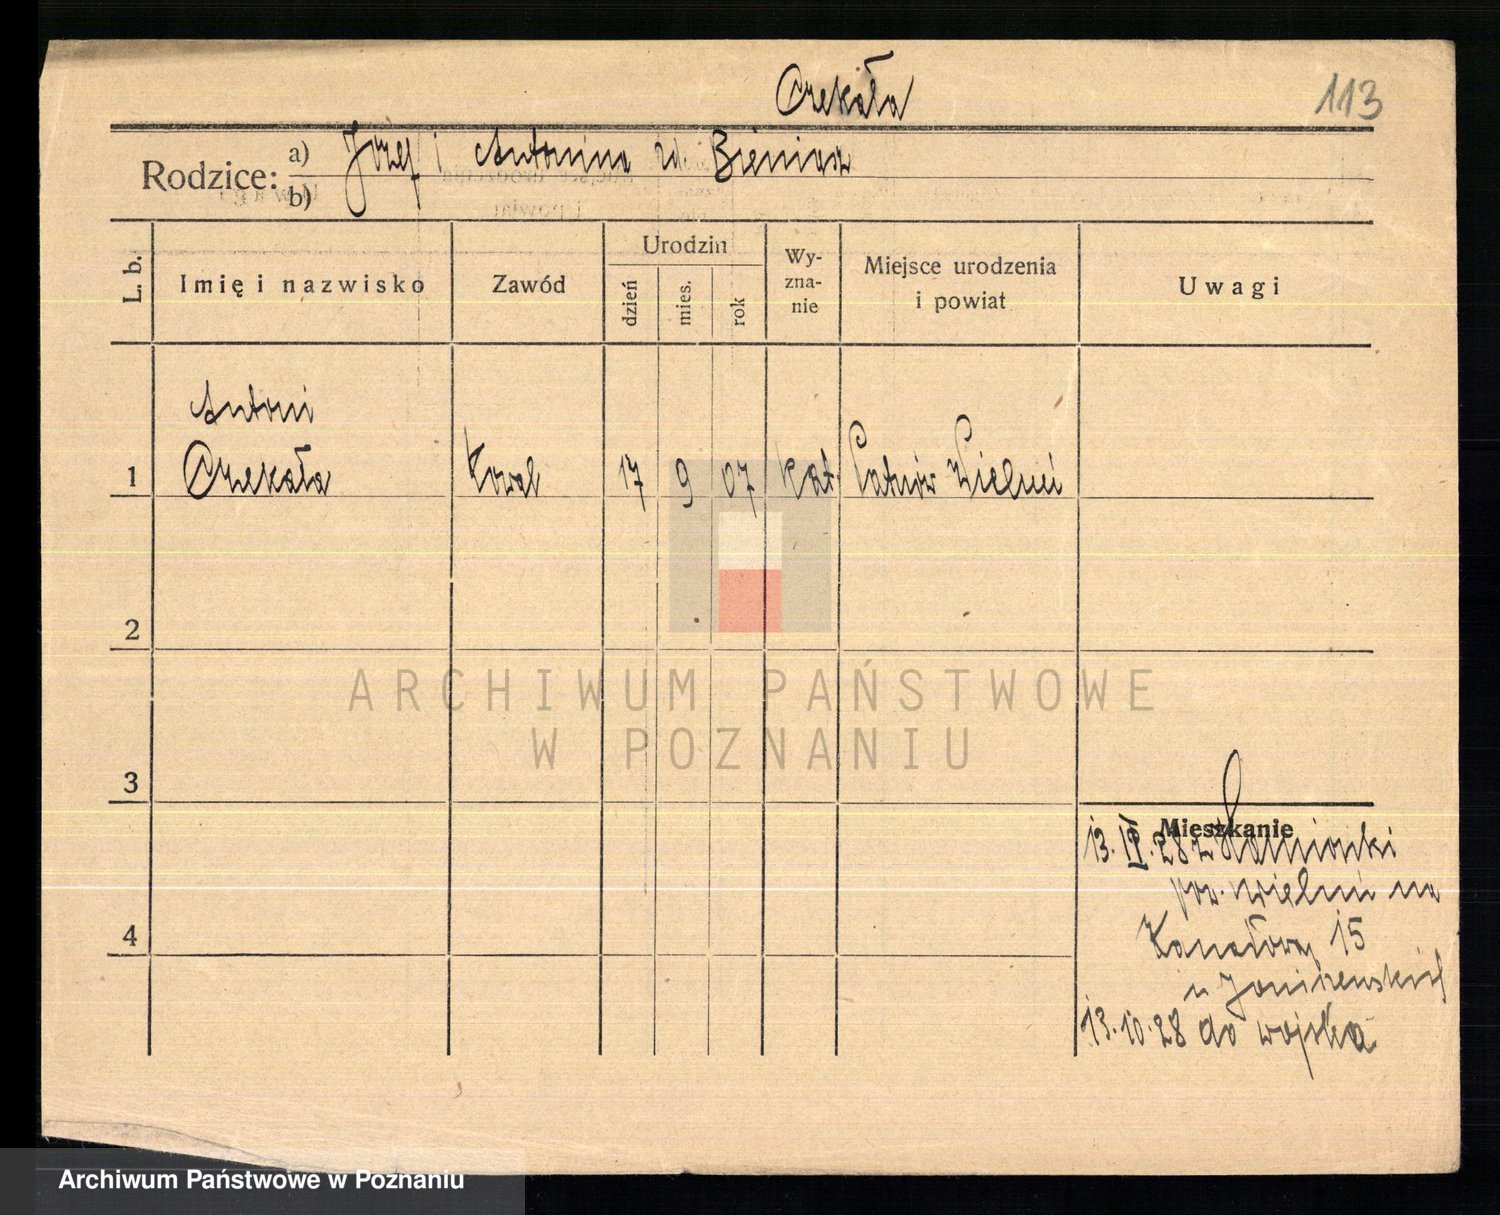 Czekała
113
Rodzice: a) Józef i Antonina zd. Bieniasz
b)
L. b.
Imię i nazwisko
Zawód
Urodzin
dzień
mies.
rok
Wy-
zna-
nie
Miejsce urodzenia
i powiat
Uwagi
Antoni
1 Czekała Kowal 17 9 07 kat Patnów Wieluń
2
ARCHIWUM PAŃSTWOWE
W POZNANIU
3
Mieszkanie
13. IV. 28 z Kamionki
pow. Wieluń na
4
Kanałową 15
u Joniszewskich
13.10.28 do wojska
Archiwum Państwowe w Poznaniu